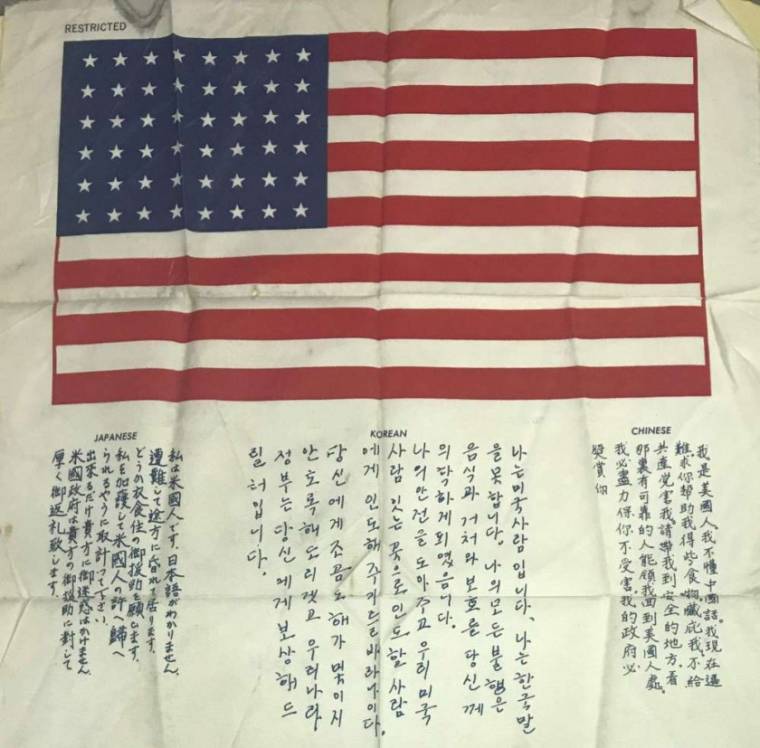 RESTRICTED
JAPANESE
私は米國人です。日本語がわかりません。
遭難して途方に暮れて居ります。
どうか衣食住の御援助を願ひます。
私を加護して米國人の許へ歸へ
られるやうに取計って下さい。
出來るだけ貴方に御迷惑はかけません。
米國政府は貴方の御援助に對して
厚く御返礼致します。
KOREAN
나는 미국사람 입니다. 나는 한국말
을 못 합니다. 나의 모든 불행은
음식과 거처와 보호를 당신께
의탁하게 되였읍니다.
나의 안전을 도아주고 우리 미국
사람 잇는 곳으로 인도할 사람
에게 인도해 주기를 바라나이다.
당신에게 조곰도 해가 및이지
안토록 해 드리겟고 우리나라
정부는 당신에게 보상해 드
릴 터입니다.
CHINESE
我是美國人。我不懂中國話。我現在遇
難。求你幫助我得些食物。藏庇我。不給
共產党害我。請帶我到安全的地方。看
那裏有可靠的人能領我回到美國人處。
我必盡力保你不受害。我的政府必
獎賞你